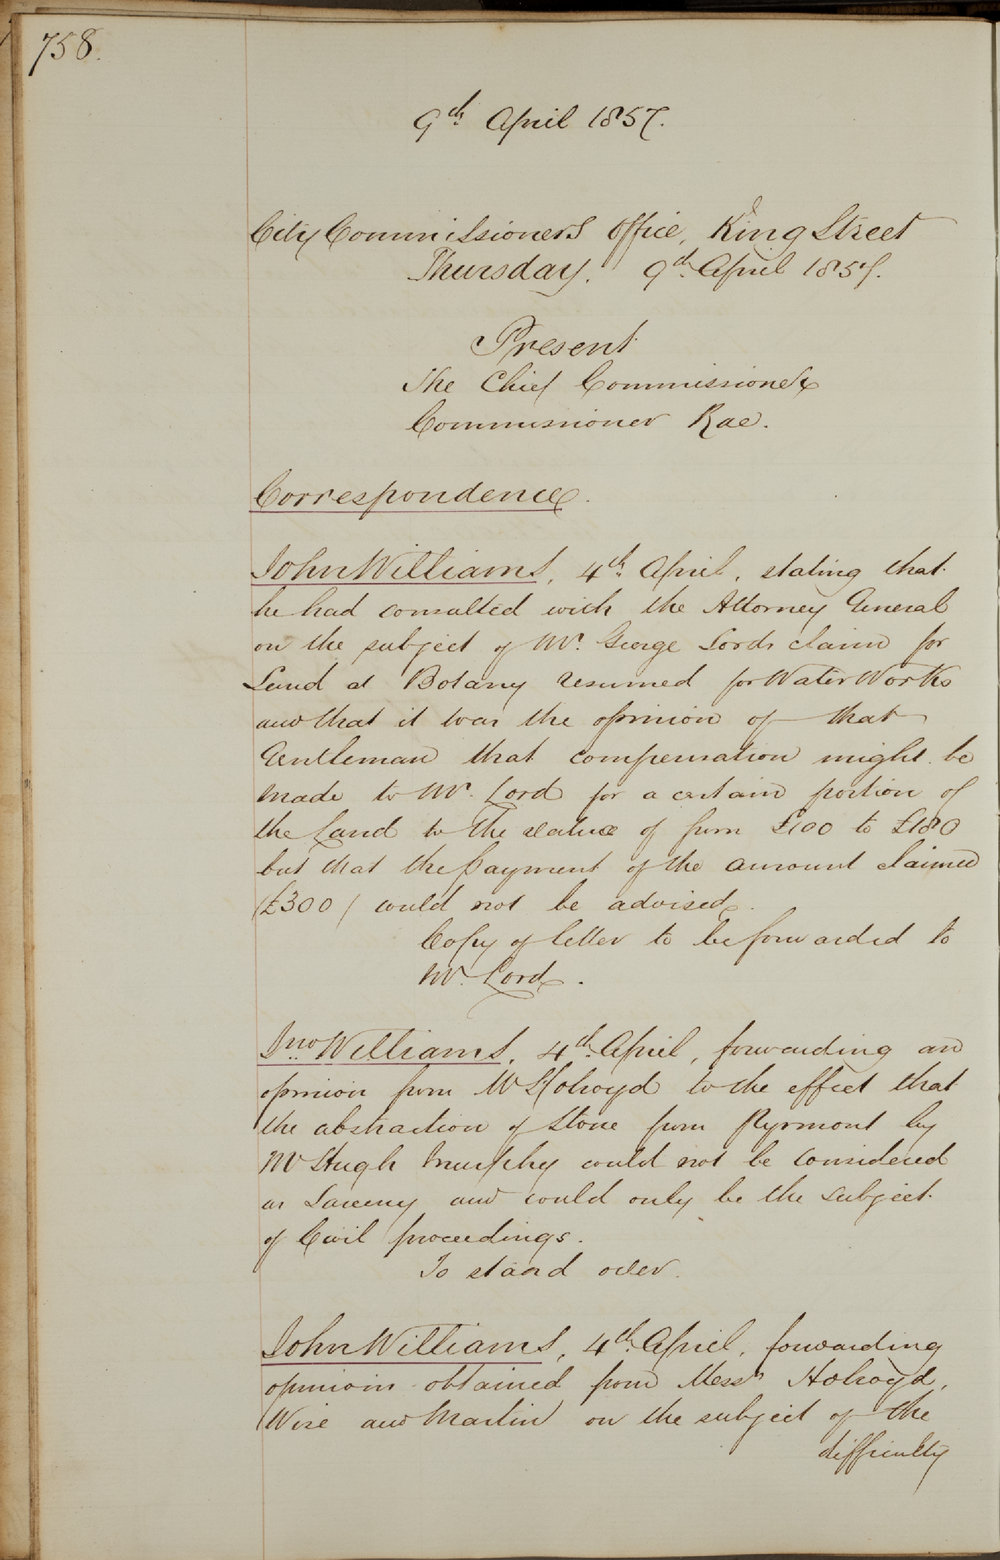 758.
9th April 1857.
City Commissioners Office, King Street
Thursday, 9th April 1857.
Present
The Chief Commissioner
Commissioner Rae.
Correspondence.
John Williams, 4th April, stating that
he had consulted with the Attorney General
on the subject of Mr. George Lords claim for
Land at Botany resumed for Water Works
and that it was the opinion of that
Gentleman that compensation might be
made to Mr. Lord for a certain portion of
the Land to the value of from £100 to £180
but that the payment of the amount claimed
(£300) could not be advised.
Copy of letter to be forwarded to
Mr. Lord.
Jno Williams, 4th April, forwarding an
opinion from Mr Holroyd to the effect that
the abstraction of Stone from Pyrmont by
Mr Hugh Murphy could not be considered
as Larceny and could only be the subject
of Civil proceedings.
To stand over.
John Williams, 4th April, forwarding
opinions obtained from Messrs Holroyd,
Wise and Martin on the subject of the
difficulty